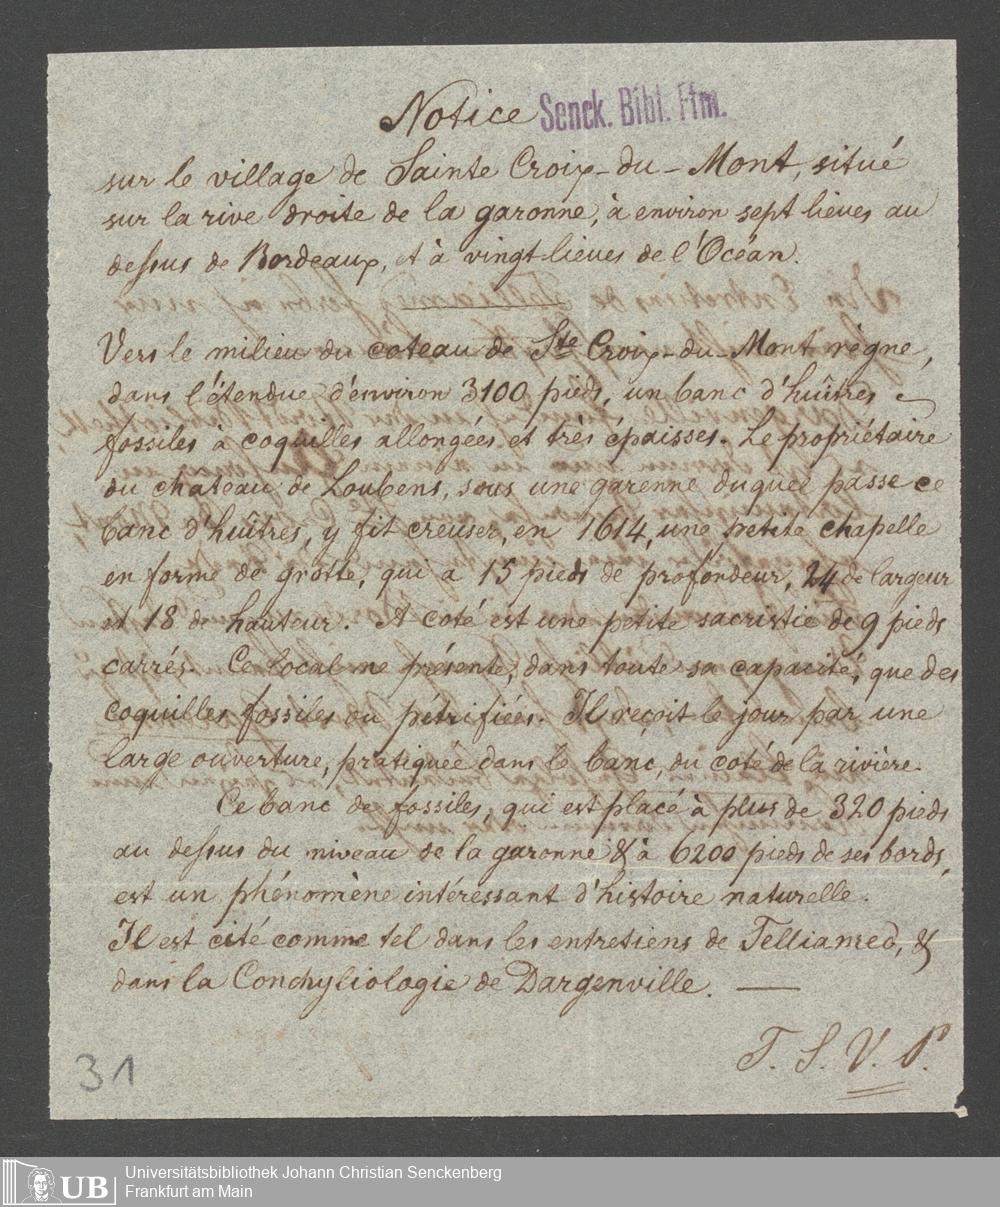 Notice Senck. Bibl. Ffm.
sur le village de Sainte Croix-du-Mont, situé
sur la rive droite de la garonne, à environ sept lieues au
dessus de Bordeaux, et à vingt lieues de l'Océan.
Vers le milieu du coteau de Ste Croix-du-Mont règne,
dans l'étendue d'environ 3100 pieds, un banc d'huîtres
fossiles à coquilles allongées et très épaisses. Le propriétaire
du chateau de Loubens, sous une garenne duquel passe ce
banc d'huîtres, y fit creuser, en 1614, une petite chapelle
en forme de grotte, qui a 15 pieds de profondeur, 24 de largeur
et 18 de hauteur. A coté est une petite sacristie de 9 pieds
carrés. Ce local ne présente, dans toute sa capacité, que des
coquilles fossiles ou pétrifiées. Il reçoit le jour par une
large ouverture, pratiquée dans le banc, du coté de la rivière.
Ce banc de fossiles, qui est placé à plus de 320 pieds
au dessus du niveau de la garonne & à 6200 pieds de ses bords,
est un phénomène intéressant d'histoire naturelle.
Il est cité comme tel dans les entretiens de Telliamed, &
dans la Conchyliologie de Dargenville. —
T. S. V. P.
31
UB
Universitätsbibliothek Johann Christian Senckenberg
Frankfurt am Main